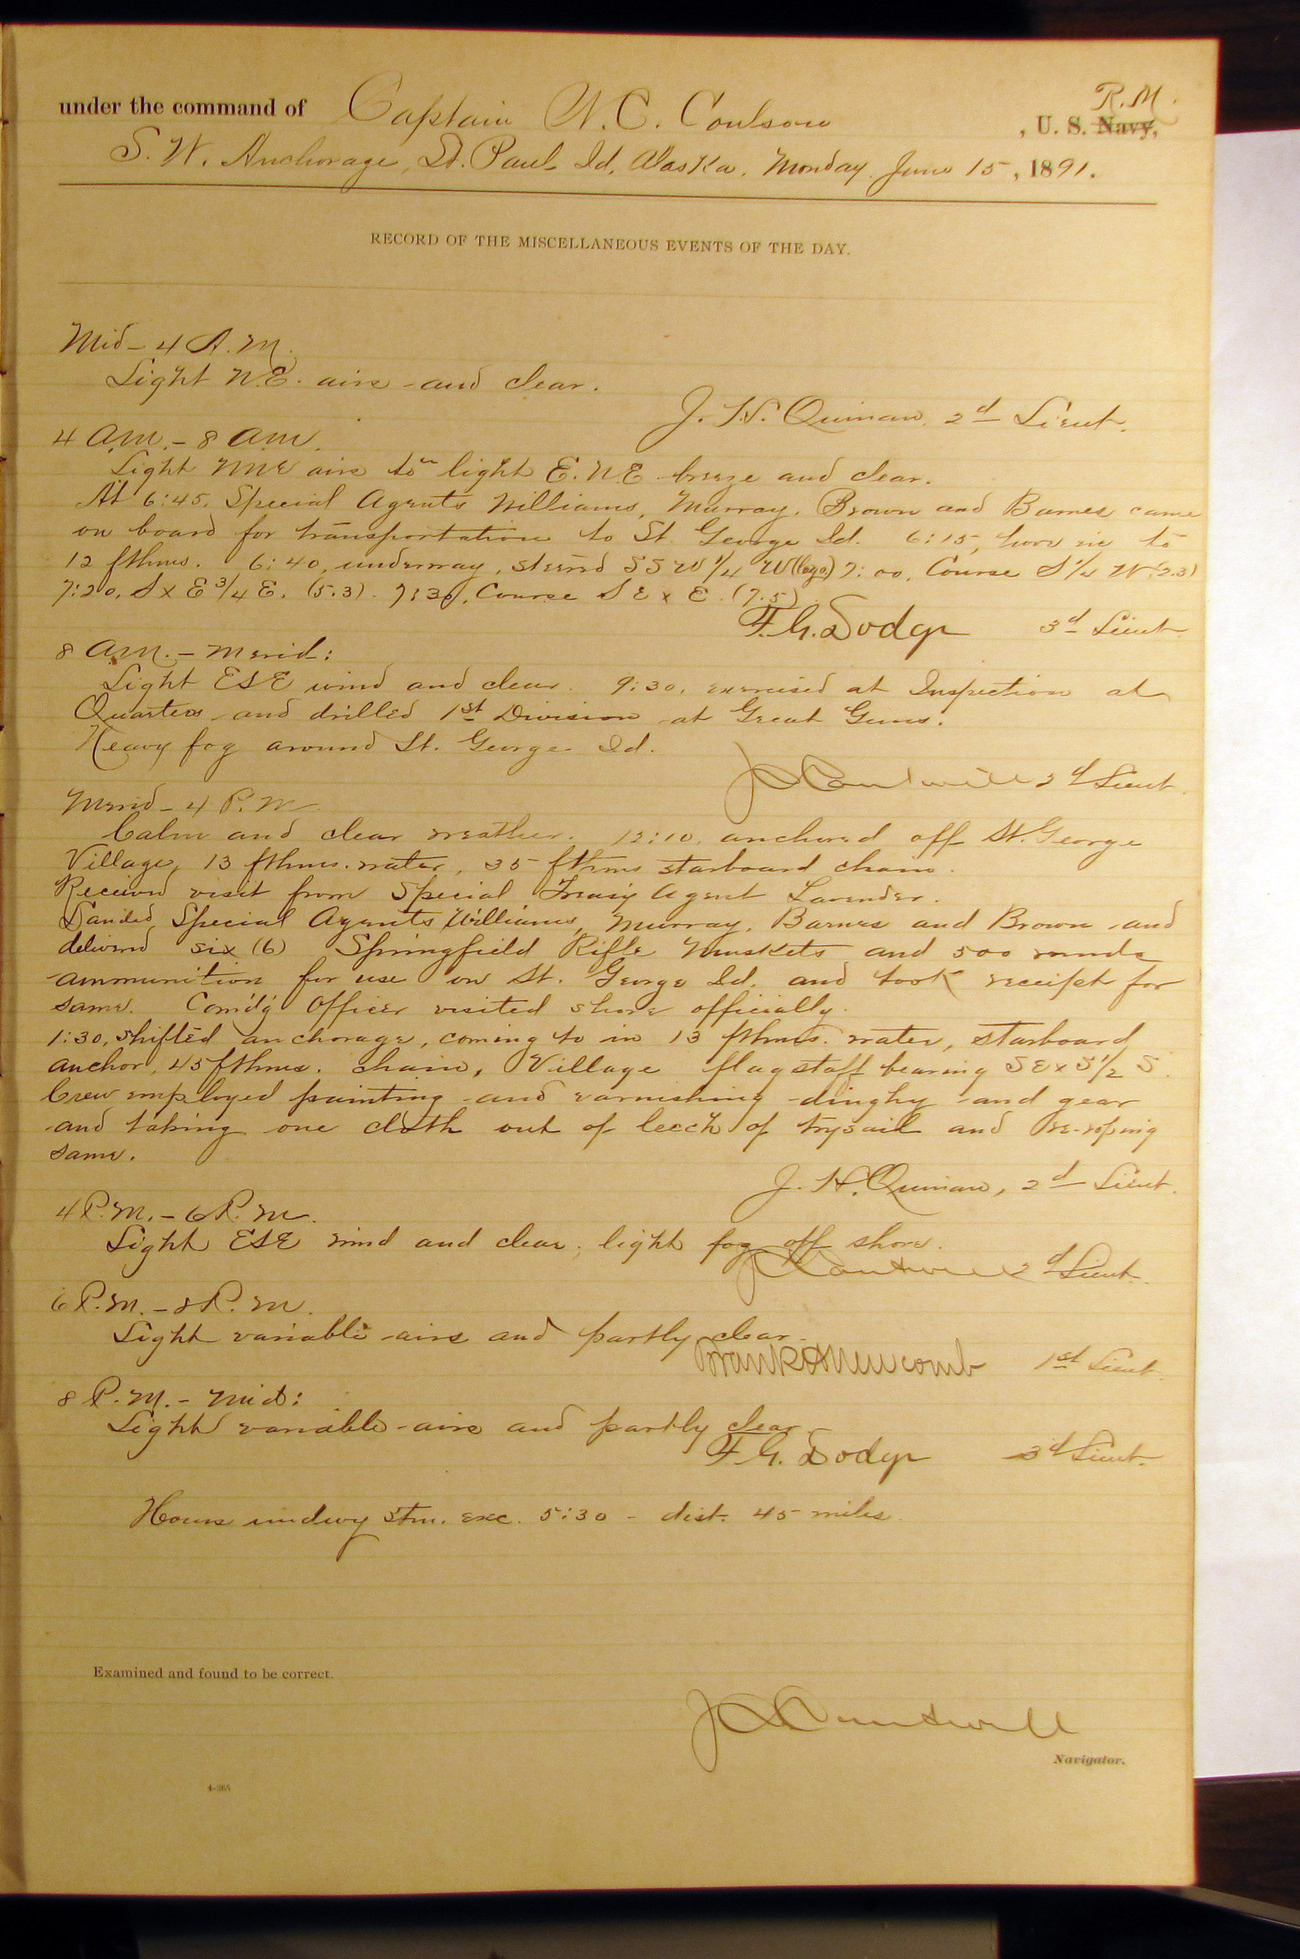 under the command of Captain W. C. Coulson, U. S. Navy, R. M.
S. W. Anchorage, St. Paul Id, Alaska, Monday June 15, 1891.
RECORD OF THE MISCELLANEOUS EVENTS OF THE DAY.
Mid - 4 A.M.
Light N.E. airs and clear.
J. H. Quinan, 2d Lieut.
4 A.M. - 8 A.M.
Light NNE airs to light E.N.E breeze and clear.
At 6:45, Special Agents Williams, Murray, Brown and Barnes came
on board for transportation to St. George Id. 6:15, hove in to
12 fthms. 6:40, underway, steered SSW 1/4 W 7:00, Course S 1/4 W (2.3)
7:20, S x E 3/4 E. (5.3). 7:30, Course S E x E. (7.5)
F. G. Dodge 3d Lieut.
8 A.M. - Merid:
Light ESE wind and clear. 9:30, exercised at Inspection at
Quarters and drilled 1st Division at Great Guns.
Heavy fog around St. George Id.
J C Cantwell 2d Lieut.
Merid - 4 P.M
Calm and clear weather. 12:10, anchored off St. George
Village, 13 fthms. water, 35 fthms starboard chain.
Received visit from Special Treas'y Agent Lavender.
Landed Special Agents Williams, Murray, Barnes and Brown and
delivered six (6) Springfield Rifle Muskets and 500 rounds
ammunition for use on St. George Id. and took receipt for
same. Com'd'g Officer visited shore officially.
1:30, shifted anchorage, coming to in 13 fthms. water, starboard
anchor, 45 fthms. chain, Village flagstaff bearing SE x S 1/2 S.
Crew employed painting and varnishing dinghy and gear
and taking one cloth out of leech of trysail and re-roping
same.
J. H. Quinan, 2d Lieut.
4 P.M. - 6 P.M.
Light ESE wind and clear, light fog off shore.
J C Cantwell 2d Lieut.
6 P.M. - 8 P.M.
Light variable airs and partly clear.
Frank H Newcomb 1st Lieut.
8 P.M. - Mid:
Light variable airs and partly clear
F. G. Dodge 3d Lieut.
Hours underwy stm. exc. 5:30 - dist. 45 miles.
Examined and found to be correct.
J C Cantwell
Navigator.
4-265